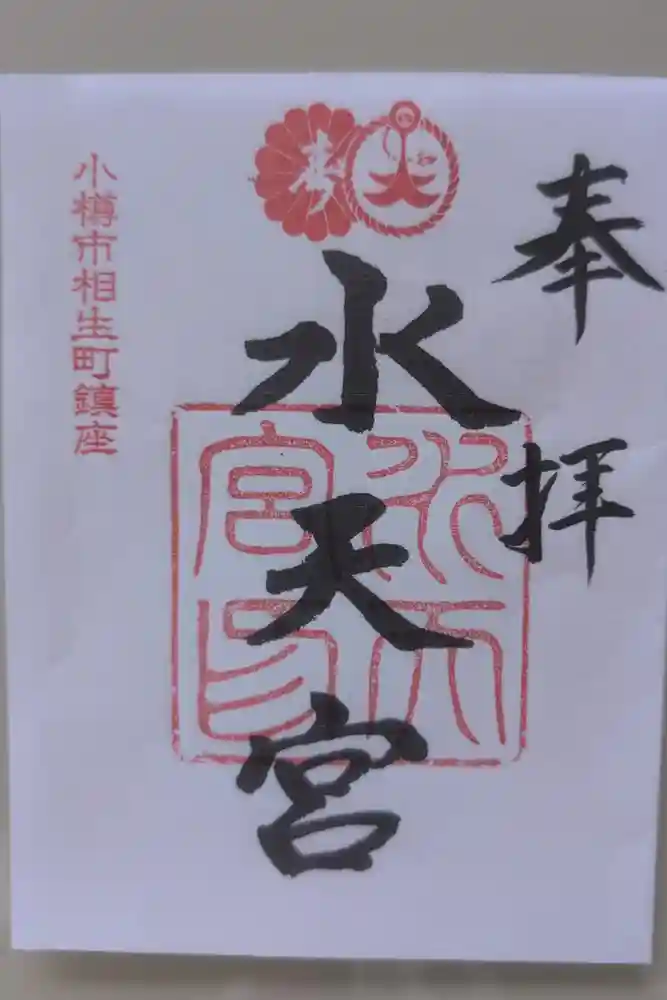 奉拝
水天宮
水天宮印
小樽市相生町鎮座